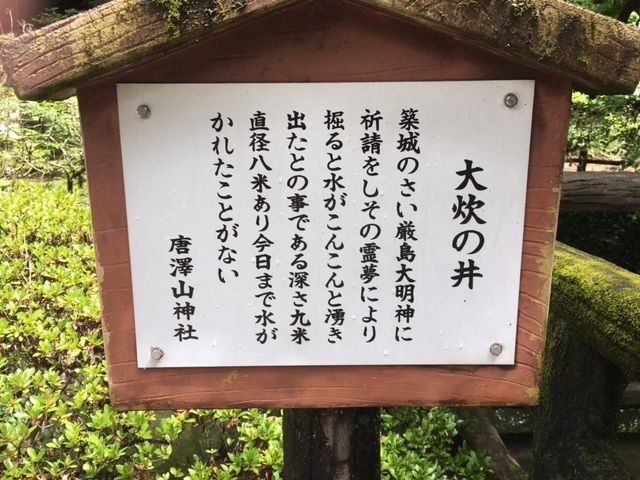 大炊の井
築城のさい厳島大明神に
祈請をしその霊夢により
掘ると水がこんこんと湧き
出たとの事である深さ九米
直径八米あり今日まで水が
かれたことがない
唐澤山神社